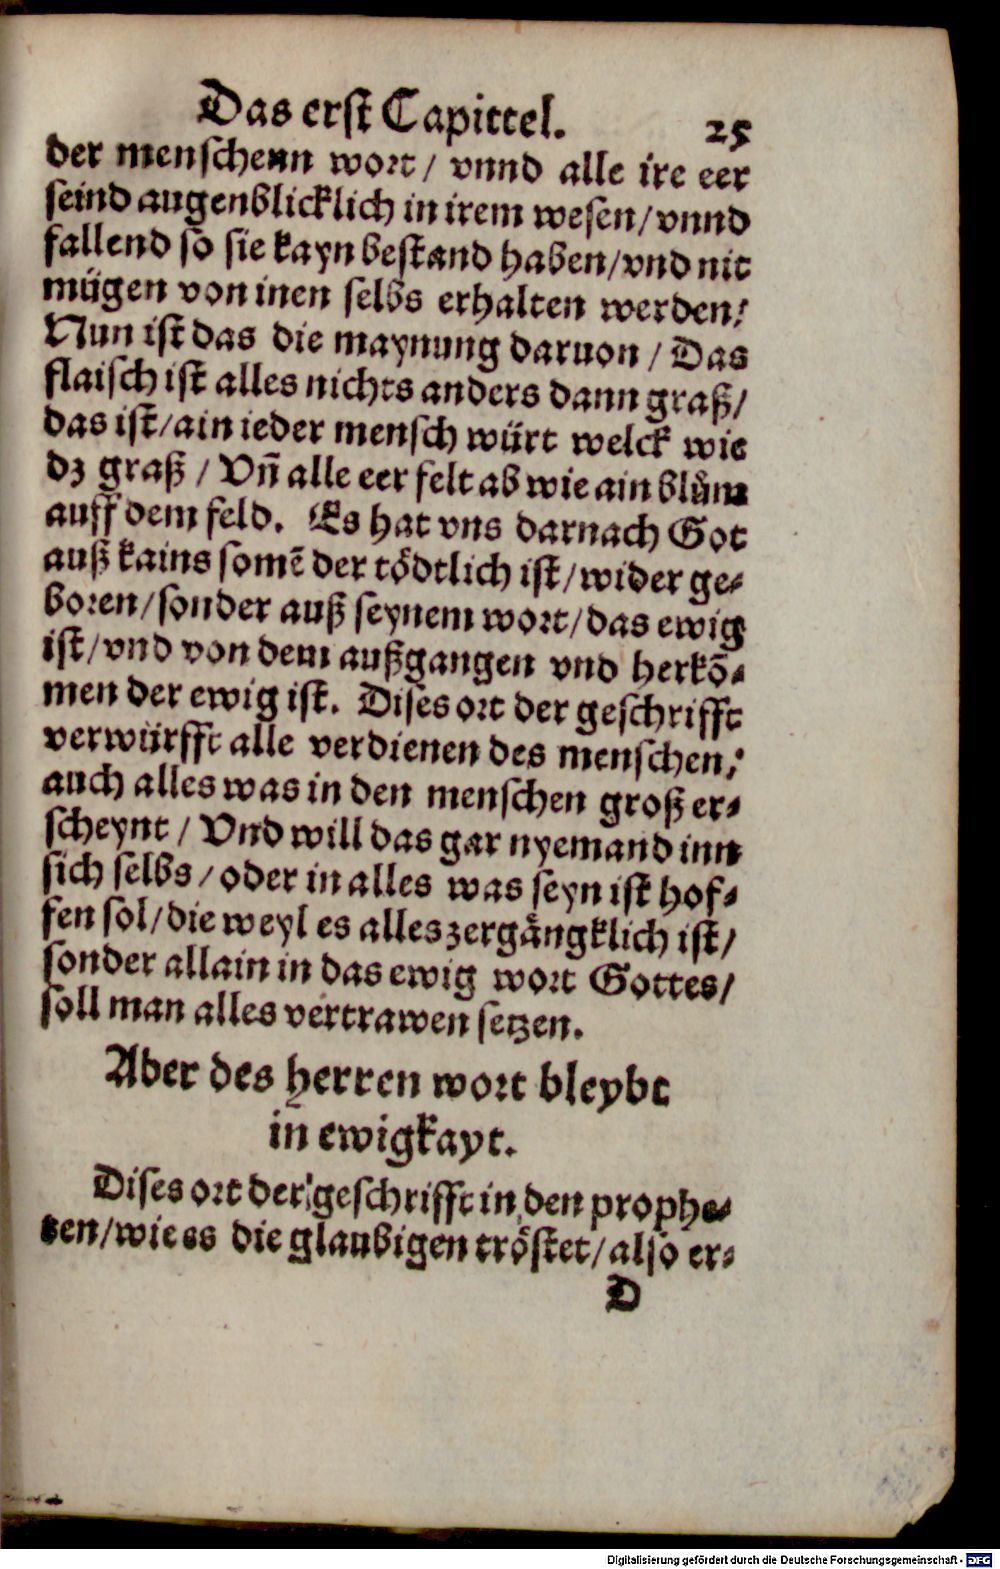 Das erst Capittel. 25
der menschenn wort / vnnd alle ire eer
seind augenblicklich in irem wesen / vnnd
fallend so sie kayn bestand haben / vnd nit
mügen von inen selbs erhalten werden /
Nun ist das die maynung daruon / Das
flaisch ist alles nichts anders dann graß /
das ist / ain ieder mensch würt welck wie
dz graß / Vñ alle eer felt ab wie ain blům
auff dem feld. Es hat vns darnach Got
auß kains somē der tödtlich ist / wider ge⸗
boren / sonder auß seynem wort / das ewig
ist / vnd von dem außgangen vnd herkō⸗
men der ewig ist. Dises ort der geschrifft
verwürfft alle verdienen des menschen /
auch alles was in den menschen groß er⸗
scheynt / Vnd will das gar nyemand inn
sich selbs / oder in alles was seyn ist hof⸗
fen sol / die weyl es alles zergångklich ist /
sonder allain in das ewig wort Gottes /
soll man alles vertrawen setzen.
Aber des herren wort bleybt
in ewigkayt.
Dises ort der geschrifft in den prophe⸗
ten / wie es die glaubigen tröstet / also er⸗
D
Digitalisierung gefördert durch die Deutsche Forschungsgemeinschaft - DFG